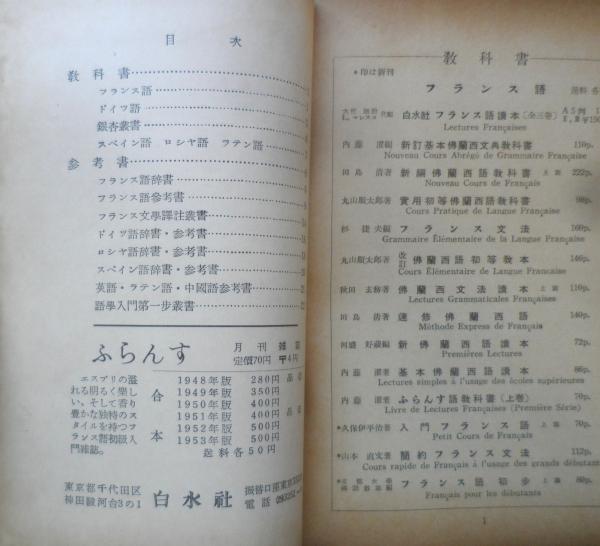 目次
教科書
フランス語
ドイツ語
銀杏叢書
スペイン語 ロシヤ語 ラテン語
参考書
フランス語辞書
フランス語参考書
フランス文學譯注叢書
ドイツ語辞書・参考書
ロシヤ語辞書・参考書
スペイン語辞書・参考書
英語・ラテン語・中國語参考書
語學入門第一歩叢書
ふらんす
月刊雑誌
定價70円 〒4円
エスプリの溢
れる明るく樂し
い、そして香り
豊かな独特のス
タイルを持つフ
ランス語初級入
門雑誌。
合本
1948年版 280円
1949年版 350円
1950年版 400円
1951年版 400円
1952年版 500円
1953年版 500円
送料各50円
東京都千代田区
神田駿河台3の1
白水社
振替口座東京
電話
教科書
*印は新刊
フランス語
送料 各
白水社 フランス語讀本〔全三巻〕
A5判
Lectures Françaises
内藤濯編 新訂基本佛蘭西文典教科書 110p.
Nouveau Cours Abrégé de Grammaire Française
田島清著 新編佛蘭西語教科書 上製 222p.
Nouveau Cours de Français
丸山順太郎著 實用初等佛蘭西語教科書 98p.
Cours Pratique de Langue Française
杉捷夫編 フランス文法 160p.
Grammaire Élémentaire de la Langue Française
丸山順太郎著 改訂 佛蘭西語初等教本 146p.
Cours Élémentaire de Langue Française
秋田玄務著 佛蘭西文法讀本 上製 110p.
Lectures Grammaticales Françaises
田島清著 速修佛蘭西語 140p.
Méthode Express de Français
河盛好蔵編 新佛蘭西語教本 72p.
Premières Lectures
内藤濯著 基本佛蘭西語教本 86p.
Lectures simples à l'usage des écoles supérieures
内藤濯著 ふらんす語教科書(上巻) 70p.
Livre de Lectures Françaises (Première Série)
*久保伊平治著 入門フランス語 上製 70p.
Petit Cours de Français
*山本直文著 簡約フランス文法 112p.
Cours rapide de Français à l'usage des grands débutants
フランス語初歩 上製 80p.
Français pour les débutants
1